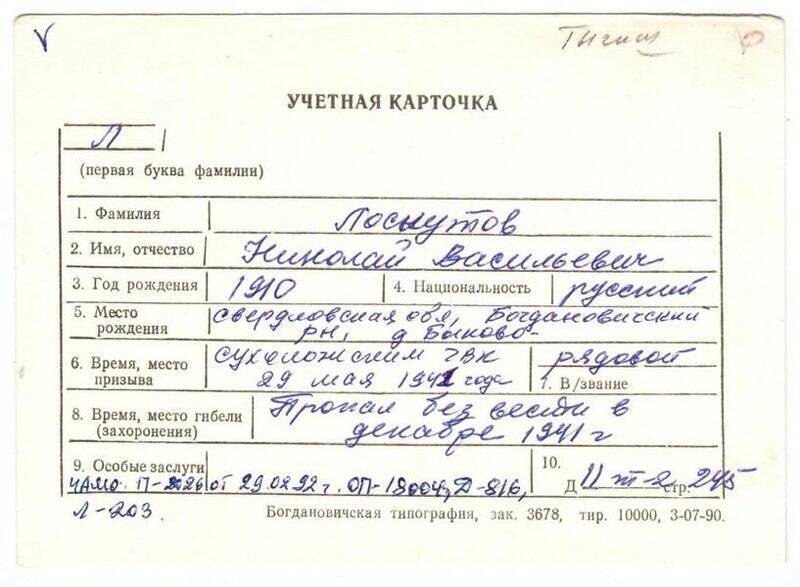 Тыгиш
УЧЕТНАЯ КАРТОЧКА
Л
(первая буква фамилии)
1. Фамилия Лоскутов
2. Имя, отчество Николай Васильевич
3. Год рождения 1910 4. Национальность русский
5. Место рождения Свердловская обл, Богдановичский
рн, д Быково-
6. Время, место призыва Сухоложским ГВК
29 мая 1941 года
рядовой
7. В/звание
8. Время, место гибели (захоронения) Пропал без вести в
декабре 1941 г
9. Особые заслуги
ЦАМО от 29.02.92г. ОП-18004, Д-816,
Л-203
10.
Д II т-2 стр. 245
Богдановичская типография, зак. 3678, тир. 10000, 3-07-90.